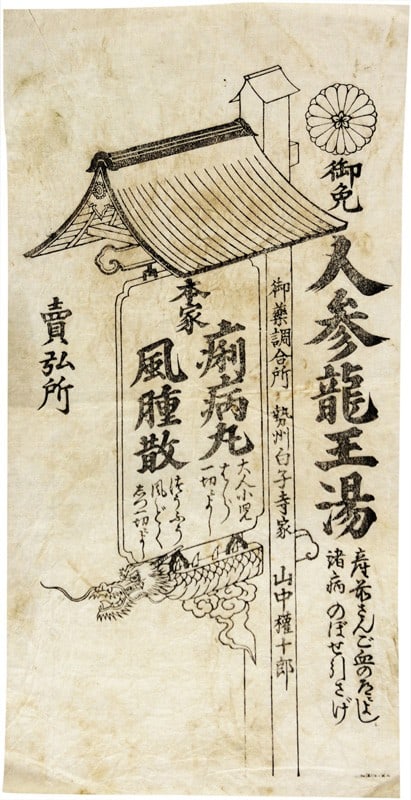 御免
人参龍王湯
産前さんご血のみちによし
諸病のぼせ引さげ
御薬調合所 勢州白子寺家 山中權十郎
本家
痢病丸
大人小児
はら
一切によし
風腫散
つうふう
風どく
一切によし
賣弘所